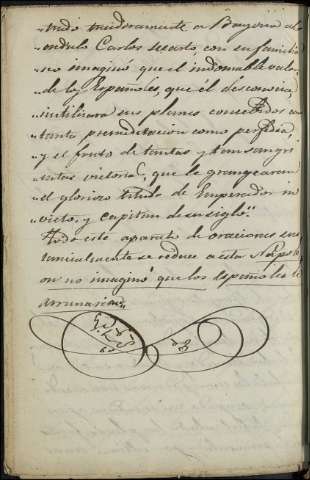 "traido traidoramente a Bayona al
"ondulo Carlos sesarlo, con su familia
"no imaginó que el indomable valor
"de los Españoles, que él desconocia
"inutilizara sus planes concebidos con
"tanta premeditacion como perfidia,
"y el fruto de tantas y tan sangri
"entas victorias, que le grangearon
"el glorioso titulo de Emperador in
"victo, y capitan de su siglo".
Todo este aparato de oraciones sus
tancialmente se reduce a esta Napole
on no imaginó que los españoles le
arruinarian"